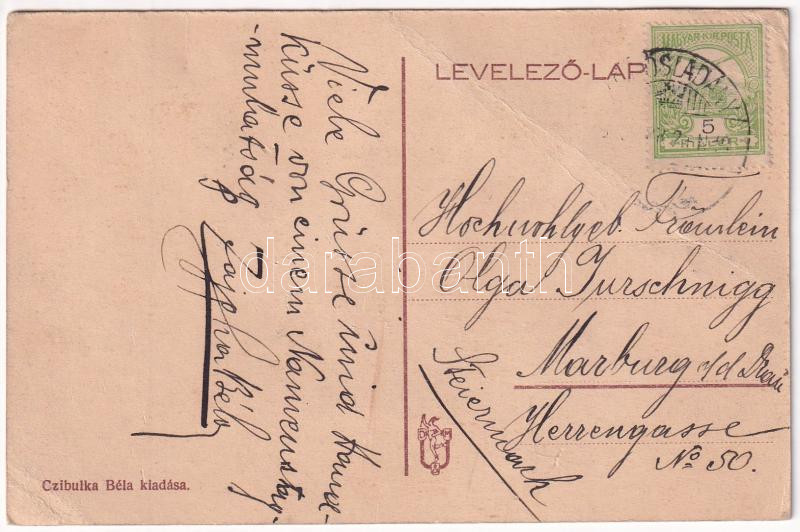 Viele Grüsse und Hand-
küsse von einem Namenstag-
-mulatság
Béla
Czibulka Béla kiadása.
LEVELEZŐ-LAP
MAGYAR·KIR·POSTA
5
Hochwohlgeb. Fräulein
Olga Jurschnigg
Marburg a/d Drau
Herrengasse
No 50.
Steiermark
darabanth